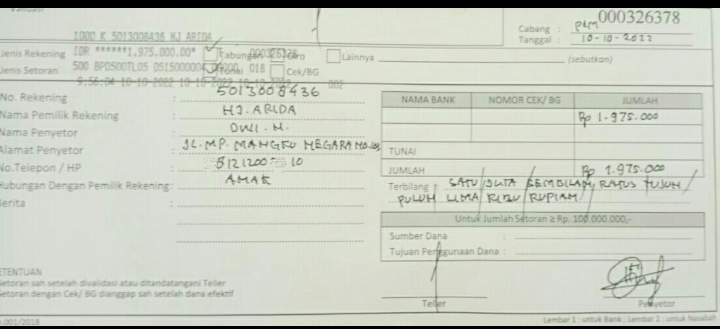 Validasi
000326378
1000 K 5013008436 HJ ARIDA
Cabang : PLM
Tanggal : 10-10-2022
Jenis Rekening IDR ******1,975,000.00* Tabungan 000326378 Giro Lainnya (sebutkan)
Jenis Setoran 500 Tunai 018 Cek/BG
9:56:04 10-10-2022 10-10-2022 10-10-2022 002
No. Rekening : 5013008436
Nama Pemilik Rekening : HJ. ARIDA
Nama Penyetor : DWI. H.
Alamat Penyetor : JL. MP. MANGKU NEGARA
No.Telepon / HP :
Hubungan Dengan Pemilik Rekening: ANAK
Berita :
NAMA BANK NOMOR CEK/ BG JUMLAH
Rp 1.975.000
TUNAI
JUMLAH Rp 1.975.000
Terbilang : SATU JUTA SEMBILAN RATUS TUJUH
PULUH LIMA RIBU RUPIAH
Untuk Jumlah Setoran ≥ Rp. 100.000.000,-
Sumber Dana :
Tujuan Penggunaan Dana :
KETENTUAN
Setoran sah setelah divalidasi atau ditandatangani Teller
Setoran dengan Cek/ BG dianggap sah setelah dana efektif
Teller Penyetor
001/2018
Lembar 1 : untuk Bank ; Lembar 2 : untuk Nasabah